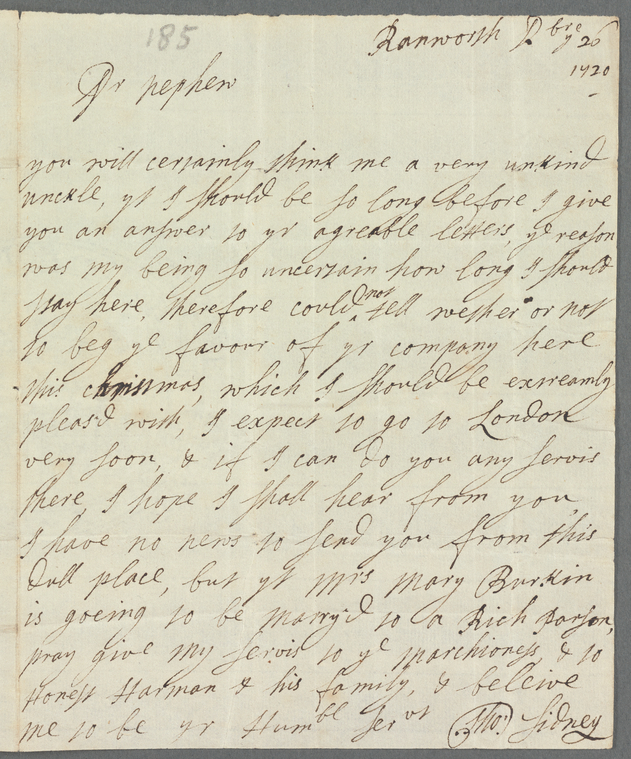 185
Ranworth Dbre ye 26
1720
Dr nephew
you will certainly think me a very unkind
unckle, yt I should be so long before I give
you an answer to yr agreable letters, ye reason
was my being so uncertain how long I should
stay here, therefore could not tell wether or not
to beg ye favour of yr company here
this christmas, which I should be extreamly
pleas'd with, I expect to go to London
very soon, & if I can do you any servis
there, I hope I shall hear from you,
I have no news to send you from this
dull place, but yt Mrs Mary Burkin
is goeing to be marry'd to a Rich parson,
pray give my servis to ye Marchioness, & to
Honest Harman & his family, & beleive
me to be yr Humble servt Tho: Sidney